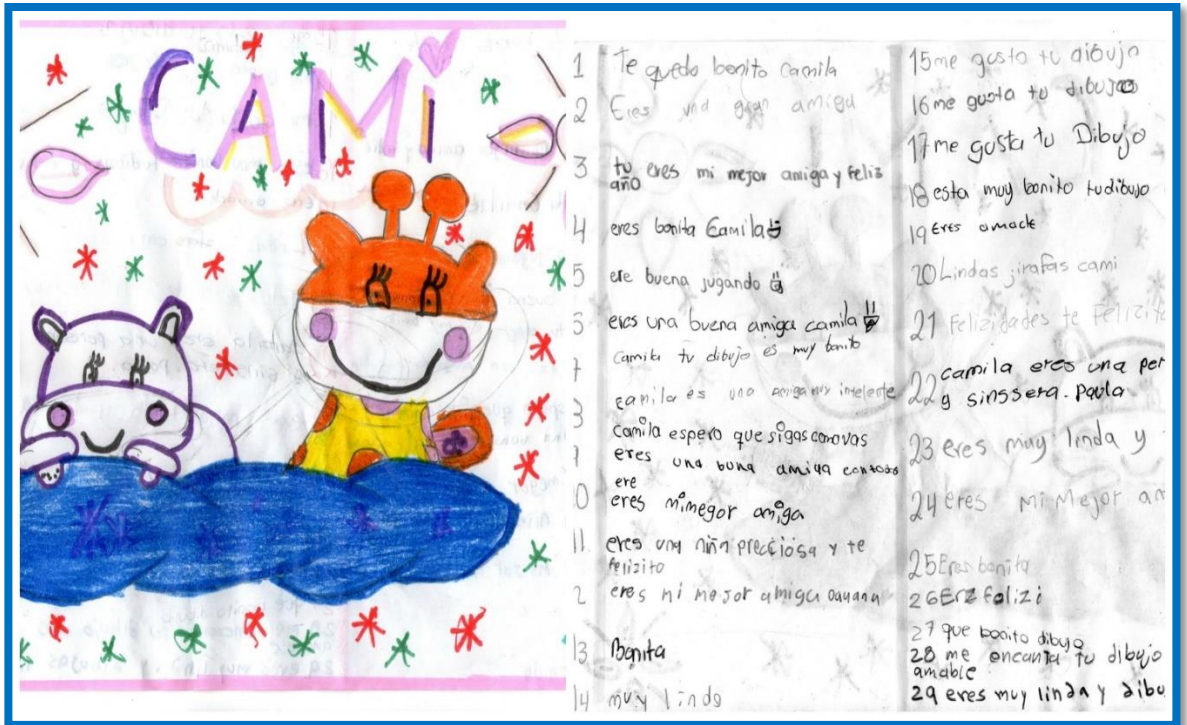 CAMi
1 Te quedo bonito Camila
2 Eres una gran amiga
3 tu eres mi mejor amiga y feliz
año
4 eres bonita Camila
5 ere buena jugando
eres una buena amiga camila
camila tu dibujo es muy bonito
7
camila es una amiga muy
camila espero que sigas
eres una buna amiga
ere
0 eres mimegor amiga
11 eres una niña precciosa y te
felizito
2 eres mi mejor amiga
13 Bonita
14 muy lindo
15 me gusta tu dibujo
16 me gusta tu
17 me gusta tu Dibujo
18 esta muy bonito tudibujo
19 Eres
20 Lindas jirafas cami
21 Felizidades te
22 camila eres una per
y sinssera. Paula
23 eres muy linda y
24 eres Mi Mejor am
25 Eres bonita
26
27 que bonito dibujo
28 me encanta tu dibujo
amable
29 eres muy linda y dibu